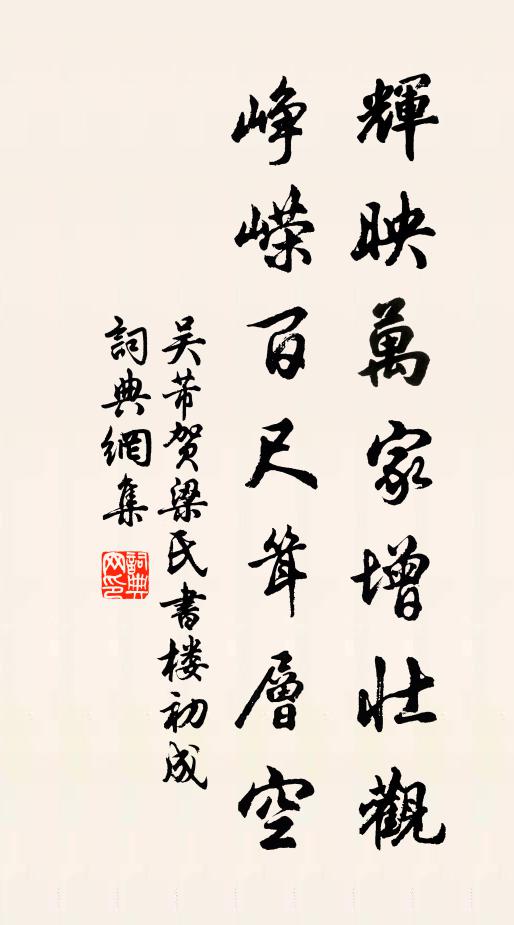 輝映萬家增壯觀
崢嶸百尺聳層空
吴芾贺梁氏書楼初成
詞典網集
詞典网印